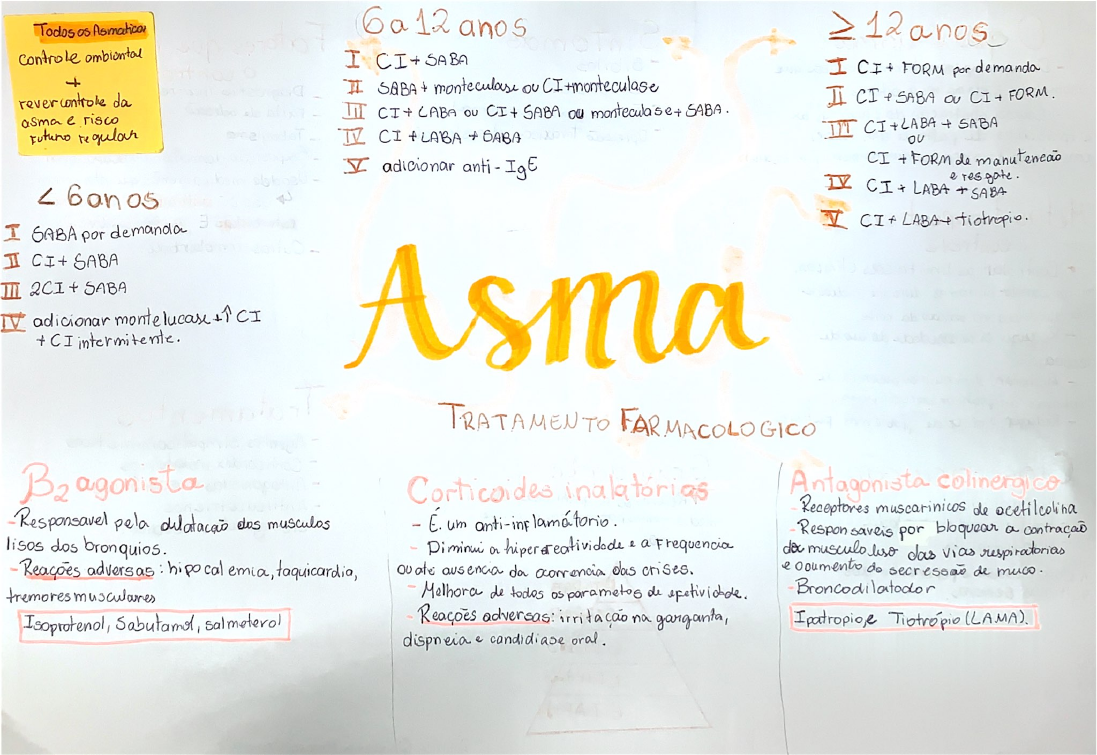 Todos os Asmaticos
controle ambiental
+
rever controle da
asma e risco
futuro regular
< 6 anos
I SABA por demanda
II CI + SABA
III 2CI + SABA
IV adicionar montelucase + ↑ CI
+ CI intermitente.
6 a 12 anos
I CI + SABA
II SABA + monteculase ou CI + monteculase
III CI + LABA ou CI + SABA ou monteculase + SABA.
IV CI + LABA + SABA
V adicionar anti - IgE
≥ 12 anos
I CI + FORM por demanda
II CI + SABA ou CI + FORM.
III CI + LABA + SABA
ou
CI + FORM de manutencão
e resgate.
IV CI + LABA + SABA
V CI + LABA + tiotropio.
Asma
TRATAMENTO FARMACOLOGICO
B2 agonista
- Responsavel pela dilatacão dos musculos
lisos dos bronquios.
- Reações adversas: hipocalemia, taquicardia,
tremores musculares
Isoprotenol, Sabutamol, salmeterol
Corticoides inalatórias
- É um anti-inflamátorio.
- Diminui a hiperreatividade e a Frequencia
ou ate ausencia da ocorrencia das crises.
- Melhora de todos os parametos de efetividade.
- Reações adversas: irritação na garganta,
dispneia e candidiase oral.
Antagónista colinergico
- Receptores muscarinicos de acetilcolina
- Responsaveis por bloquear a contração
do musculo liso das vias respiratorias
e o aumento do secressão de muco.
- Broncodilatador
Ipatropio, e Tiotrópio (LAMA).